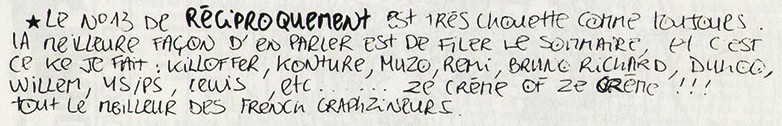 ★ LE NO13 DE RÉCIPROQUEMENT EST TRÈS CHOUETTE COMME TOUJOURS.
LA MEILLEURE FAÇON D'EN PARLER EST DE FILER LE SOMMAIRE, ET C'EST
CE KE JE FAIT : KILLOFFER, KONTURE, MUZO, REMI, BRUNO RICHARD,
WILLEM, Y5/P5, LEWIS, ETC...... ZE CRÈME OF ZE CRÈME !!!
TOUT LE MEILLEUR DES FRENCH GRAPHZINEURS.